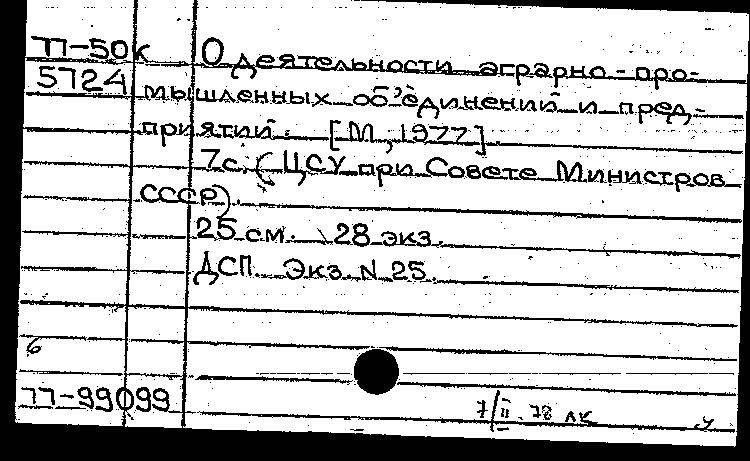 77-50к О деятельности аграрно-про-
5724 мышленных об'единений и пред-
приятий. [М., 1977].
7с. (ЦСУ при Совете Министров
СССР).
25 см. 128 экз.
ДСП. Экз. N 25.
6
77-99099
7/II.78 лк